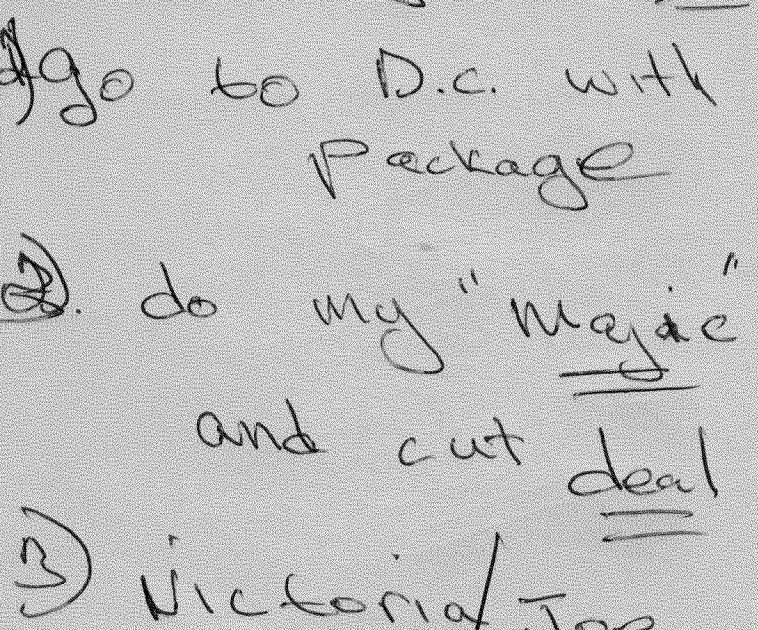 1) go to D.C. with
package
2). do my "Majic"
and cut deal
3) Victoria/